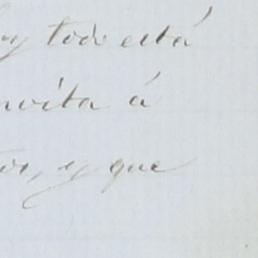 y todo está
nvita á
tos, y que